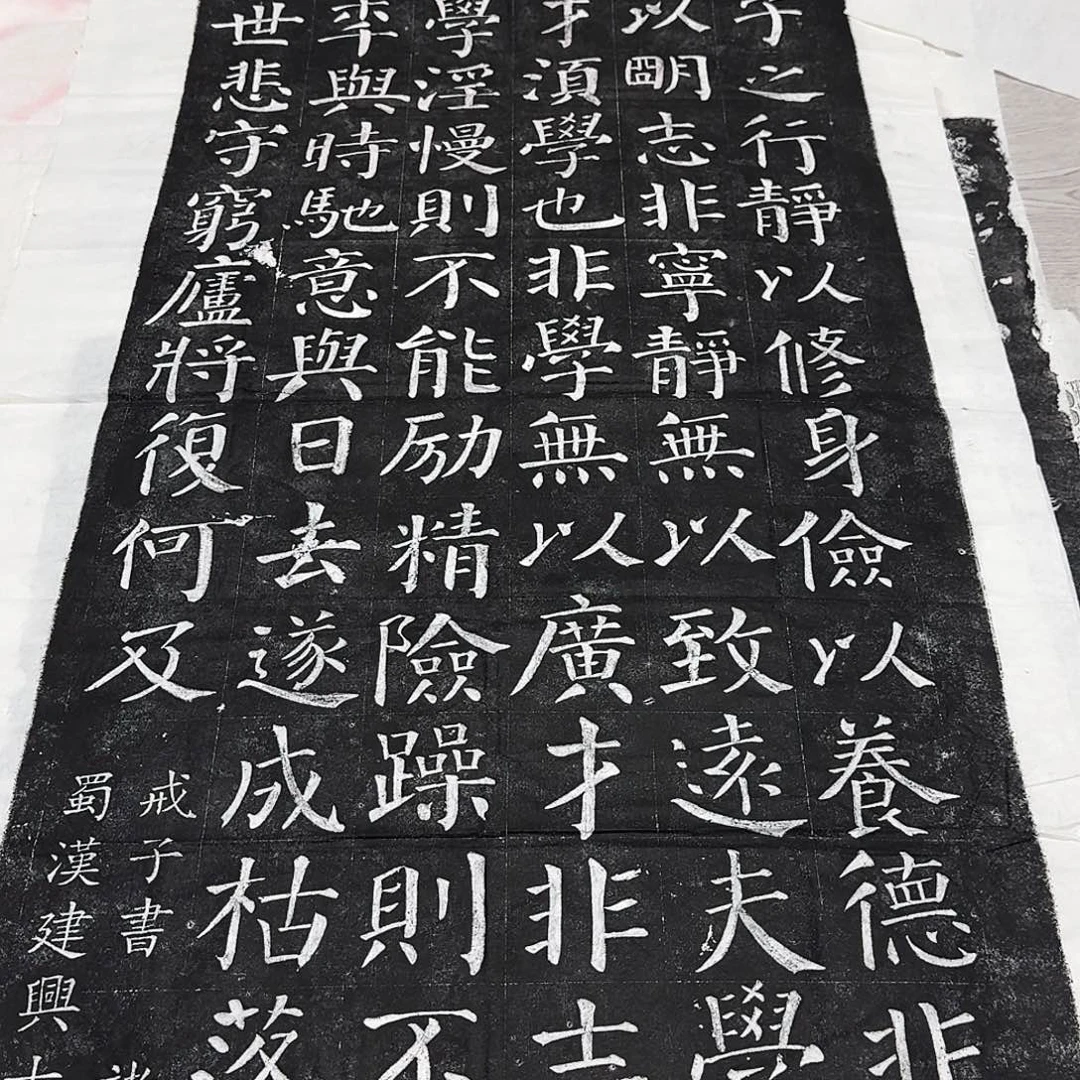 子之行靜以修身儉以養德非
以朙志非寧靜無以致遠夫學
才湏學也非學無以廣才非志
學淫慢則不能励精險躁則不
秊與時馳意與日去遂成枯落
世悲守窮廬將復何及
戒子書 諸
蜀漢建興